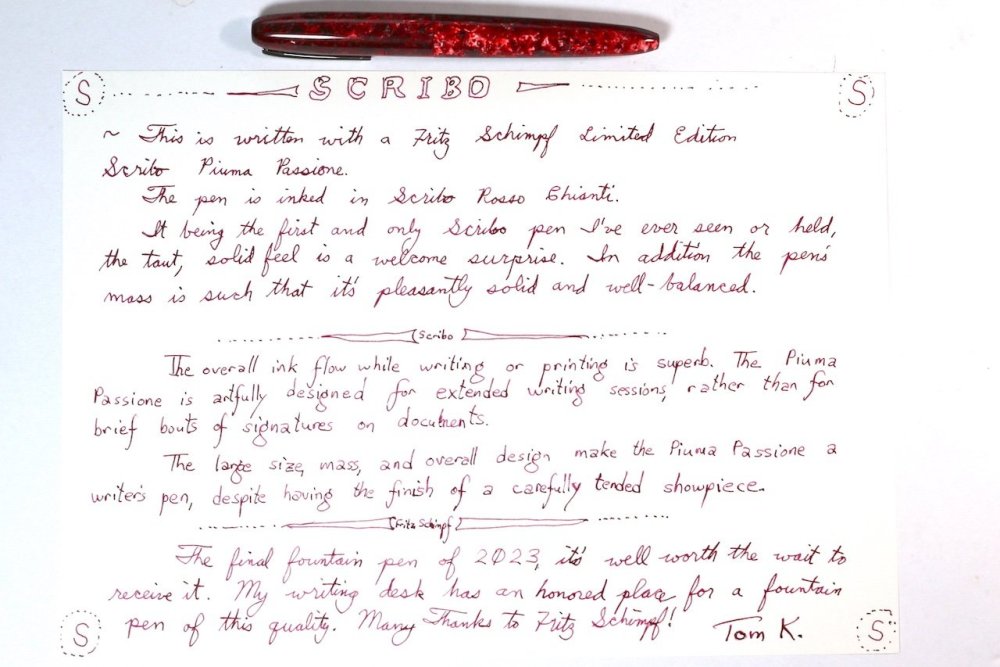 S SCRIBO S
~ This is written with a Fritz Schimpf Limited Edition
Scribo Piuma Passione.
The pen is inked in Scribo Rosso Chianti.
It being the first and only Scribo pen I've ever seen or held,
the taut, solid feel is a welcome surprise. In addition the pen's
mass is such that it's pleasantly solid and well-balanced.
Scribo
The overall ink flow while writing or printing is superb. The Piuma
Passione is artfully designed for extended writing sessions, rather than for
brief bouts of signatures on documents.
The large size, mass, and overall design make the Piuma Passione a
writer's pen, despite having the finish of a carefully tended showpiece.
Fritz Schimpf
The final fountain pen of 2023, it's well worth the wait to
receive it. My writing desk has an honored place for a fountain
pen of this quality. Many Thanks to Fritz Schimpf!
S Tom K. S